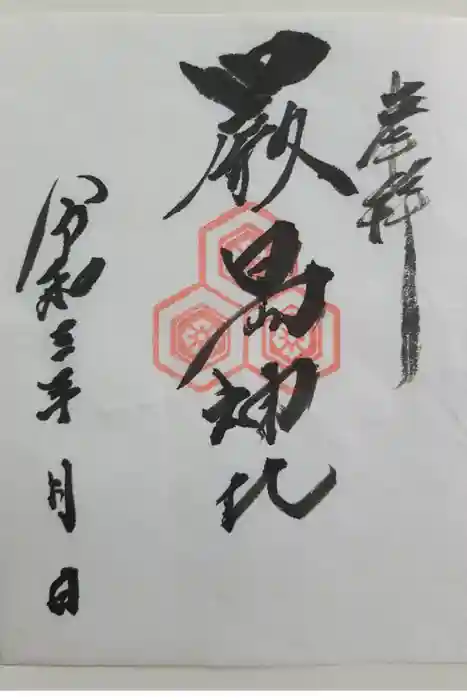 奉拝
嚴島神社
令和三年 月 日